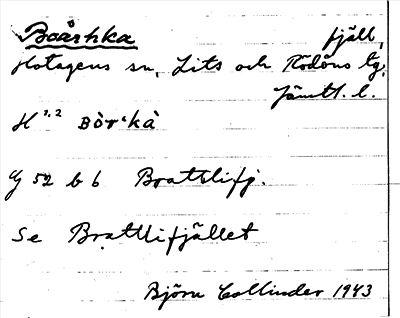 Boårhka fjäll,
Hotagens sn, Lits och Rödöns tg,
Jämtl. l.
H 1,2 Bòr‘kà
G 52 b 6 Brattlifj.
Se Brattlifjället
Björn Collinder 1943